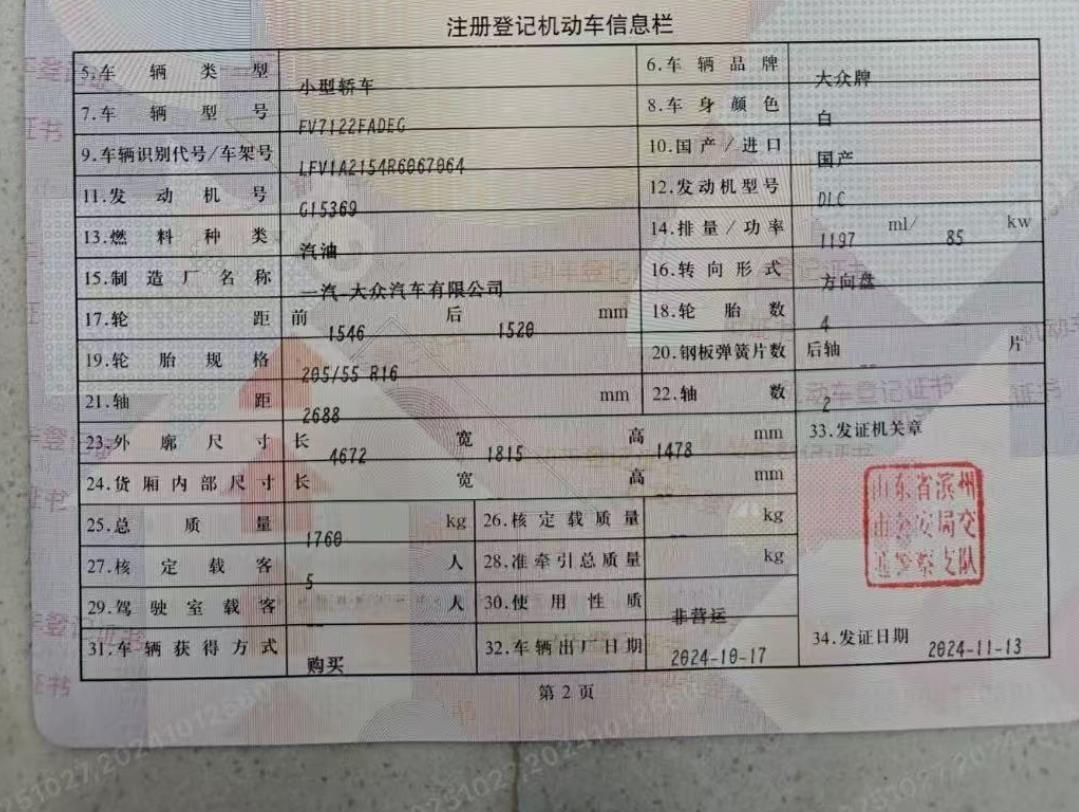 注册登记机动车信息栏
5.车辆类型 小型轿车 6.车辆品牌 大众牌
7.车辆型号 FV7122FADEG 8.车身颜色 白
9.车辆识别代号/车架号 LFV1A2154R6067064 10.国产/进口 国产
11.发动机号 G15369 12.发动机型号 DLC
13.燃料种类 汽油 14.排量/功率 1197 ml/ 85 kw
15.制造厂名称 一汽-大众汽车有限公司 16.转向形式 方向盘
17.轮距 前 1546 后 1520 mm 18.轮胎数 4
19.轮胎规格 205/55 R16 20.钢板弹簧片数 后轴 -- 片
21.轴距 2688 mm 22.轴数 2
23.外廓尺寸 长 4672 宽 1815 高 1478 mm 33.发证机关章
24.货厢内部尺寸 长 宽 -- 高 -- mm
山东省滨州
市公安局交
通警察支队
25.总质量 1760 kg 26.核定载质量 -- kg
27.核定载客 5 人 28.准牵引总质量 kg
29.驾驶室载客 -- 人 30.使用性质 非营运
31.车辆获得方式 购买 32.车辆出厂日期 2024-10-17 34.发证日期 2024-11-13
第2页